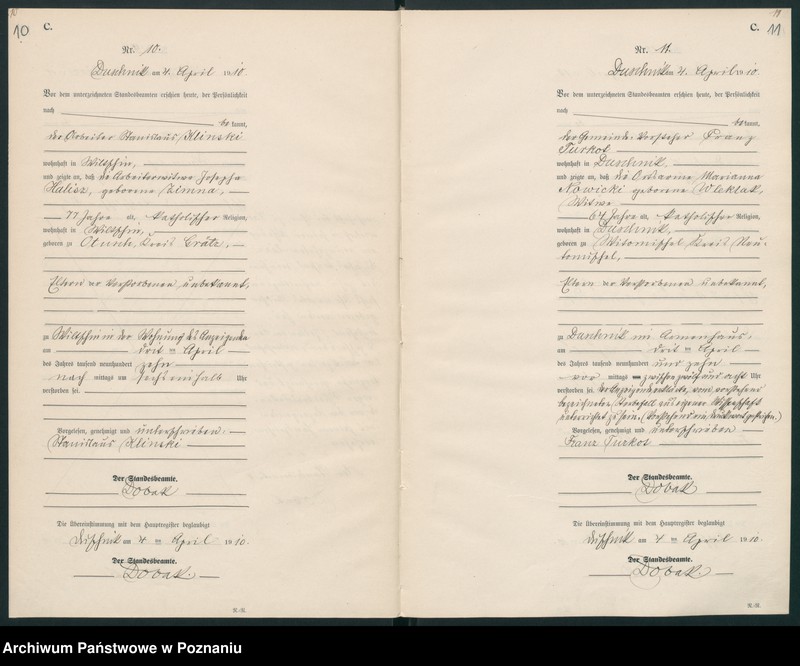 10
C.
Nr. 10.
Duschnik am 4. April 1910.
Vor dem unterzeichneten Standesbeamten erschien heute, der Persönlichkeit
nach
be kannt,
der Arbeiter Stanislaus Klinski
wohnhaft in Wilschin,
und zeigte an, daß die Arbeiterwitwe Josepha
Halisz, geborene Zimna,
77 Jahre alt, katholischer Religion,
wohnhaft in Wilschin,
geboren zu Otusch, Kreis Grätz,
Eltern der Verstorbenen unbekannt,
zu Wilschin in der Wohnung des Anzeigenden
am drit ten April
des Jahres tausend neunhundert zehn
nach mittags um sechseinhalb Uhr
verstorben sei.
Vorgelesen, genehmigt und unterschrieben.
Stanislaus Klinski
Der Standesbeamte.
Dobak
Die Übereinstimmung mit dem Hauptregister beglaubigt
Duschnik am 4 ten April 1910.
Der Standesbeamte.
Dobak.
R.-R.
11
C.
11
Nr. 11.
Duschnik am 4. April 1910.
Vor dem unterzeichneten Standesbeamten erschien heute, der Persönlichkeit
nach
be kannt,
der Gemeinde-Vorsteher Franz
Turkot
wohnhaft in Duschnik,
und zeigte an, daß die Ortsarme Marianna
Nowicki geborene
Witwe
64 Jahre alt, katholischer Religion,
wohnhaft in Duschnik,
geboren zu Witomischel Kreis Neu-
tomischel,
Eltern der Verstorbenen unbekannt,
zu Duschnik im Armenhaus,
am drit ten April
des Jahres tausend neunhundert und zehn
vor mittags zwischen zwölf und acht Uhr
verstorben sei. Der Anzeigende erklärte, vom vorstehend
bezeichneten Sterbefall aus eigener Wissenschaft
unterrichtet zu sein. (Vorstehend ein Druckwort gestrichen.)
Vorgelesen, genehmigt und unterschrieben
Franz Turkot
Der Standesbeamte.
Dobak
Die Übereinstimmung mit dem Hauptregister beglaubigt
Duschnik am 4 ten April 1910.
Der Standesbeamte.
Dobak.
R.-R.
Archiwum Państwowe w Poznaniu